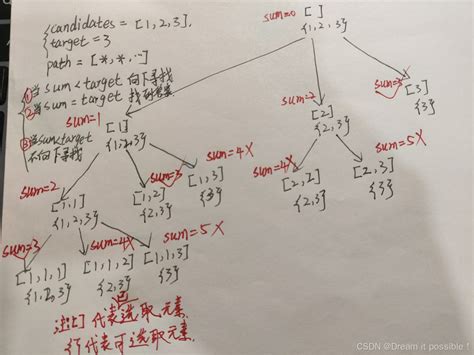 candidates = [1,2,3],
target = 3
path = [*,*,…]
① 当 sum < target 向下寻找
② 当 sum = target 找到答案
③ 当sum<target
不向下寻找
sum=0 [ ]
{1,2,3}
sum=1 [1]
{1,2,3}
sum=2 [2]
{2,3}
sum=3 [3]
{3}
sum=2 [1,1]
{1,2,3}
sum=3 [1,2]
{2,3}
sum=4X [1,3]
{3}
sum=4X [2,2]
{2,3}
sum=5X [2,3]
{3}
sum=3 [1,1,1]
{1,2,3}
sum=4X [1,1,2]
{2,3}
sum=5X [1,1,3]
{3}
[ ] 代表选取元素
{ } 代表可选取元素.
CSDN @Dream it possible！